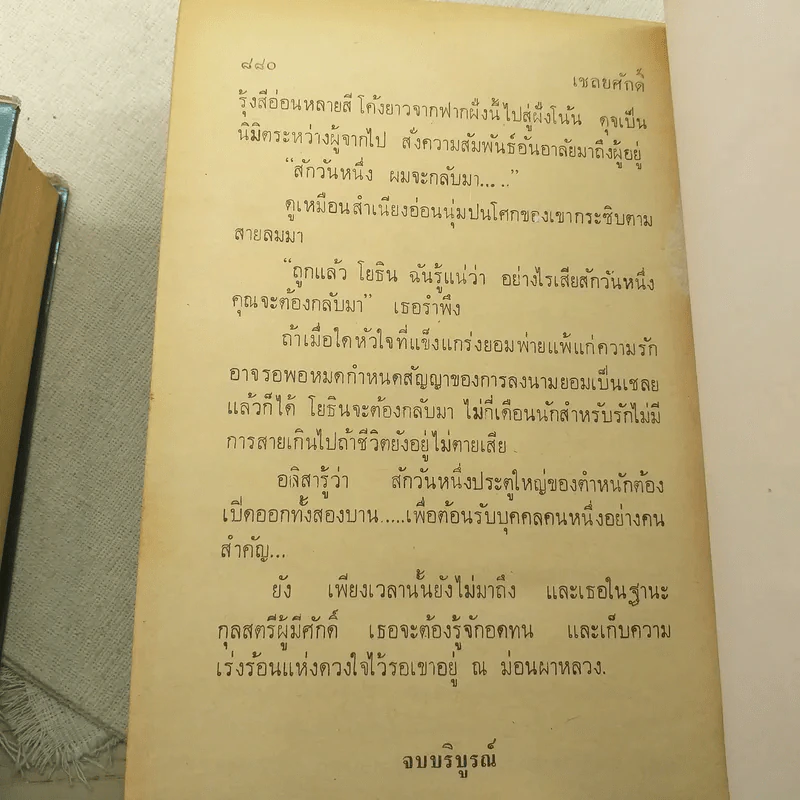 ๘๘๐
เชลยศักดิ์
รุ้งสีอ่อนหลายสี โค้งยาวจากฟากฝั่งนี้ ไปสู่ฝั่งโน้น ดุจเป็น
นิมิตระหว่างผู้จากไป สั่งความสัมพันธ์อันอาลัยมาถึงผู้อยู่
“สักวันหนึ่ง ผมจะกลับมา.....”
ดูเหมือนสำเนียงอ่อนนุ่มปนโศกของเขากระซิบตาม
สายลมมา
“ถูกแล้ว โยธิน ฉันรู้แน่ว่า อย่างไรเสียสักวันหนึ่ง
คุณจะต้องกลับมา” เธอรำพึง
ถ้าเมื่อใดหัวใจที่แข็งแกร่งยอมพ่ายแพ้แก่ความรัก
อาจรอพอหมดกำหนดสัญญาของการลงนามยอมเป็นเชลย
แล้วก็ได้ โยธินจะต้องกลับมา ไม่กี่เดือนนักสำหรับรักไม่มี
การสายเกินไปถ้าชีวิตยังอยู่ไม่ตายเสีย
อลิสารู้ว่า สักวันหนึ่งประตูใหญ่ของตำหนักต้อง
เปิดออกทั้งสองบาน.....เพื่อต้อนรับบุคคลคนหนึ่งอย่างคน
สำคัญ...
ยัง เพียงเวลานั้นยังไม่มาถึง และเธอในฐานะ
กุลสตรีผู้มีศักดิ์ เธอจะต้องรู้จักอดทน และเก็บความ
เร่งร้อนแห่งดวงใจไว้รอเขาอยู่ ณ ม่อนผาหลวง.
จบบริบูรณ์